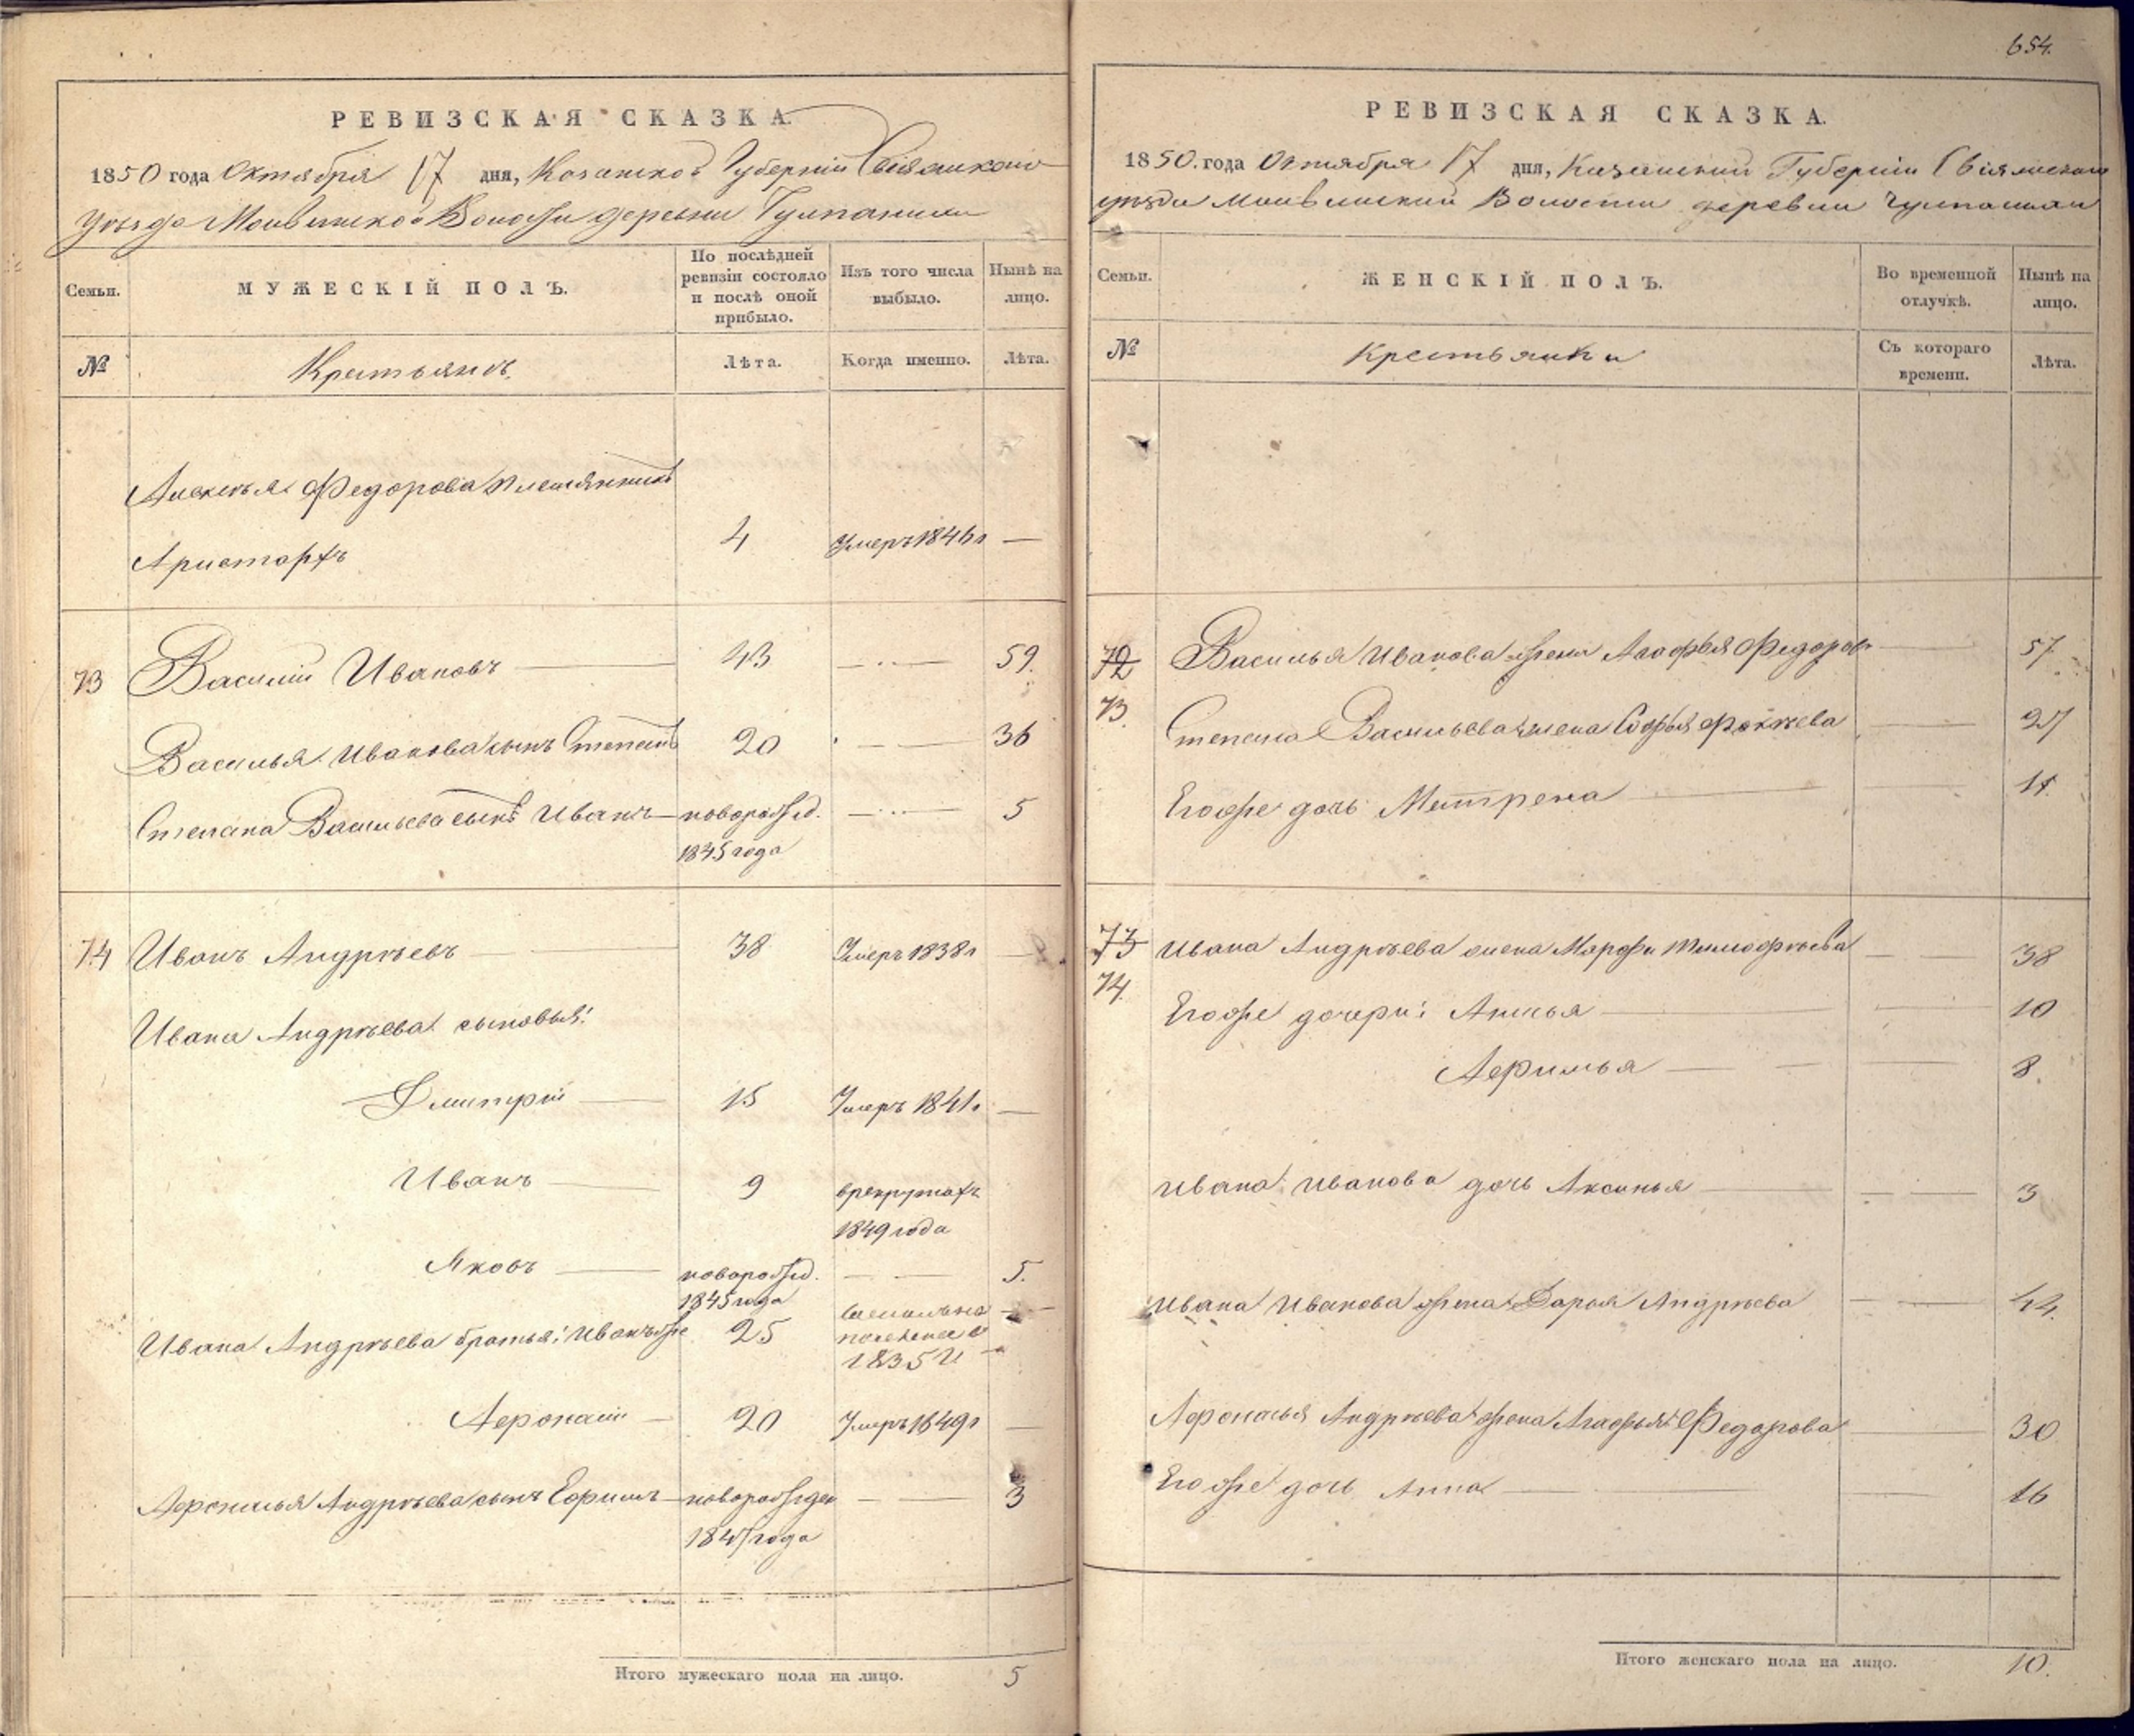 РЕВИЗСКАЯ СКАЗКА.
1850 года Октября 17 дня, Казанской Губерніи Свіяжскаго
уѣзда Волости деревни
Семьи.
МУЖЕСКІЙ ПОЛЪ.
По послѣдней ревизіи состояло и послѣ оной прибыло.
Изъ того числа выбыло.
Нынѣ на лицо.
№
Крестьянъ.
Лѣта.
Когда именно.
Лѣта.
Алексѣя Федорова племянникъ
Аристархъ 4 Умеръ 1846 г —
73 Василій Ивановъ 43 — 59.
Василья Иванова сынъ Степанъ 20 — 36
Степана Васильева сынъ Иванъ новорожд. — 5
1845 года
74 Иванъ Андрѣевъ 38 Умеръ 1838 г —
Ивана Андрѣева сыновья:
Дмитрій 15 Умеръ 1841 г —
Иванъ 9 врекрутахъ
1849 года
Яковъ новорожд. — 5.
1845 года
Ивана Андрѣева братья: Иванъ же 25 поселение
1835 —
Афонасій 20 Умеръ 1849 г —
Афонасья Андрѣева сынъ Ефимъ новорожден — 3
года
Итого мужескаго пола на лицо. 5
654.
РЕВИЗСКАЯ СКАЗКА.
1850 года Октября 17 дня, Казанской Губерніи Свіяжскаго
уѣзда Волости деревни
Семьи.
ЖЕНСКІЙ ПОЛЪ.
Во временной отлучкѣ.
Нынѣ на лицо.
№
Крестьянки
Съ котораго времени.
Лѣта.
72 Василья Иванова жена Агафья Федоров — 57
73. Степана Васильева жена Софья — 27
Егоже дочь Матрена — 11
73 Ивана Андрѣева жена Марфа Тимофѣева — 38
74. Егоже дочери: — 10
— 8.
Ивана Иванова дочь Аксинья — 3
Ивана Иванова жена Дарья Андрѣева — 44.
Афонасья Андрѣева жена Агафья Федорова — 30
Егоже дочь Анна — 16
Итого женскаго пола на лицо. 10.